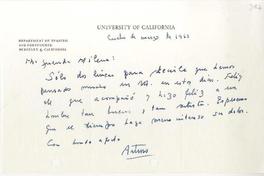 UNIVERSITY OF CALIFORNIA
DEPARTMENT OF SPANISH
AND PORTUGUESE
BERKELEY 4, CALIFORNIA
de marzo de 1963
Mi querida Milena:
Sólo dos líneas para decirle que hemos
pensado mucho en Ud. en estos días. Feliz
Ud. que acompañó y hizo feliz a un
hombre tan bueno y tan artista. Esperemos
que el tiempo haga menos intenso su dolor.
Con hondo afecto
Arturo